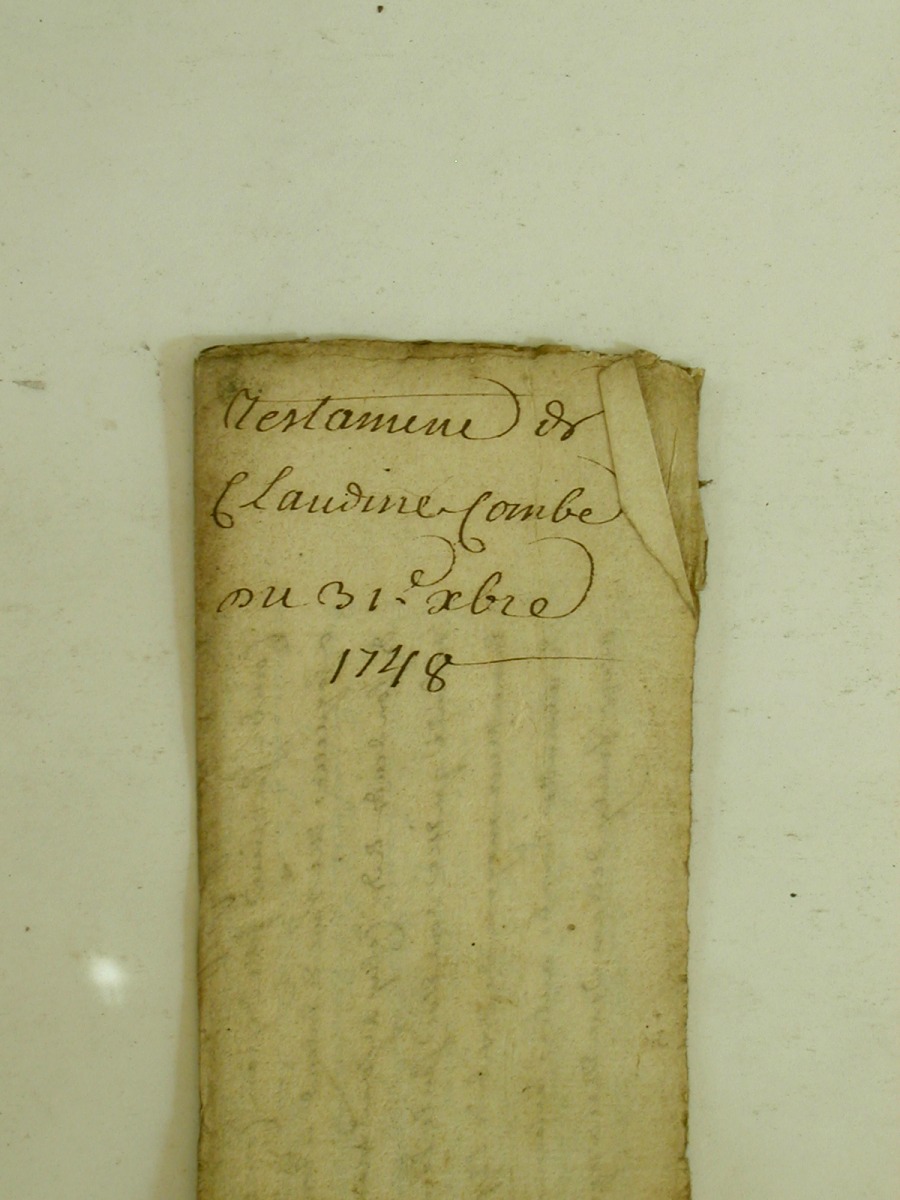 Testament de
Claudine Combe
du 31.e xbre
1748